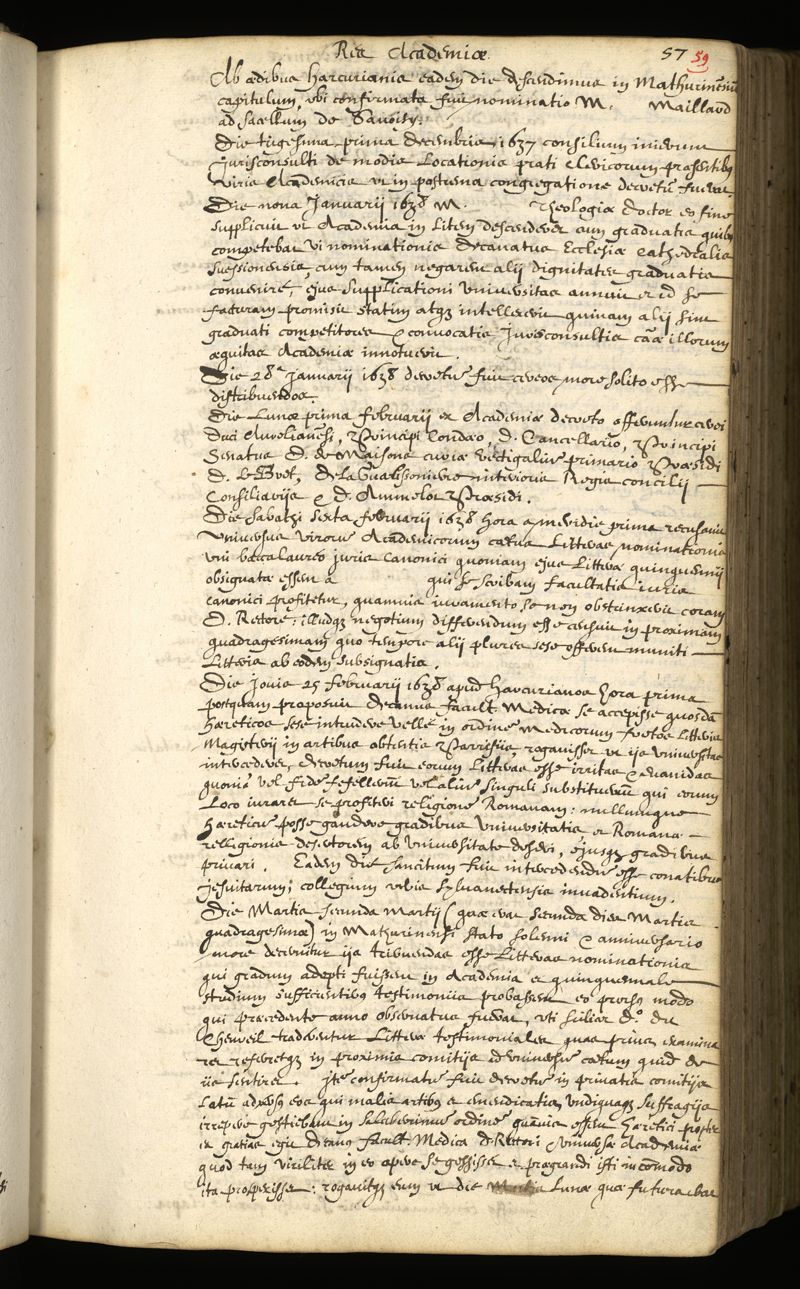 Res Academicæ. 57 59
Ab ædibus harcurianis eadem die descendimus in Mathurinēsiū
capitulum, ubi confirmata fuit nominatio M. Maillard
ad sacellum de Savoisy.
Die trigesima prima decembris 1637 consilium inierunt
Jurisconsulti de modis Locationis prati clericorum præsentibus
viris Academicis ut in postrema congregatione decretū fuerat.
Die nona Januarii 1638 M. Theologiæ doctor eo fine
supplicuit ut Academia in litem descenderet cum graduatis quibus
competebat vi nominationis decanatus Ecclesiæ Cathedralis
suessionensis, cum tamen negarent alij dignitates graduatis
convenire, ejus supplicationi universitas annuit et id se
facturam promisit statim atqȝ intellexerit quinam alij sint
graduati competitores & convocatis Jurisconsultis caæ illorum
æquitas Academiæ innotuerit.
Die 28ᵃ Januarij 1638 decretū fuit cereos more solito esse
distribuendos.
Die Lunæ prima februarij ex Academiæ decreto offeruntur cerei
Duci Aurelianēsi, Principi Condæo, D. Cancellario, Principi
Senatus D. de Maisons curiæ vectigaliū primario Præsidi
D. le Bret, de la Galissonniere interioris Regis concilij
Consiliarijs & D. Ammelot Præsidi.
Die sabathi sexta februarij 1638 hora a meridie prima recusavit
universus virorū Academicorum cætus Litteras nominationis
uni baccalaureo juris canonici quoniam ejus Litteræ quinquennij
obsignatæ essent a qui se scribam facultatis iuris
canonici profitetur, quamvis iuramento se non obstrinxerit coram
D. Rectore; illudqȝ negotium differendum esse censuit in proximam
quadragesimam quo tempore alij plures sese offerent muniti
Litteris ab eodem subsignatis.
Die Jovis 25 februarij 1638 apud harcurianos hora prima
postquam proposuit decanus facult. Medicæ se accepisse quosdā
hæreticos sese intrudere velle in ordinē medicorum fretos litteris
Magisterij in artibus obtentis Parrisiis, rogavisset ut ijs universitas
intercederet, decretum fuit eorum litteras esse irritas & evanidas
quoniā vel fidē fefellerūt vel aliū singuli substituerūt qui eorum
Loco iuraret se profiteri religionē Romanam: nullumque
hæreticū posse gaudere gradibus universitatis, et Romanæ
relligionis desertorem ab universitate deseri, ejusqȝ gradibus
privari. Eadem die sancitum fuit intercedendū esse conatibus
jesuitarum, collegium urbis sylvanectensis invadentium.
Die Martis secunda Martij (quæ erat secunda dies Martis
quadragesimæ) in Mathurinensi stato solemni & anniversario
more decernūtur ijs tribuendas esse Litteras nominationis
qui gradum adepti fuissent in Academia et quinquennale
studium sufficientibus testimoniis probassent eo prorsus modo
qui præcedente anno observatus fuerat, uti scilicet Dº. du
Chesneil traderentur Litteræ testimoniales quas prius examina
ret referretqȝ in proximis comitijs ad universū cætum quid de
iis sentiret. Itē confirmatū fuit decretū in privatis comitijs
latū adversus eos qui malis artibus et emendicatis undiquaqȝ suffragijs
irrepere gestiebant in saluberrimū ordinē quāvis essent hæretici propter
ea gratias egit decanus facult Medicæ D. Rectori & universæ Academiæ
quod tam viriliter in eo opere se gessisset et prægrandi isti incōmodo
ita prospexisset: rogavitqȝ eum ut die Lunæ quæ futura erat